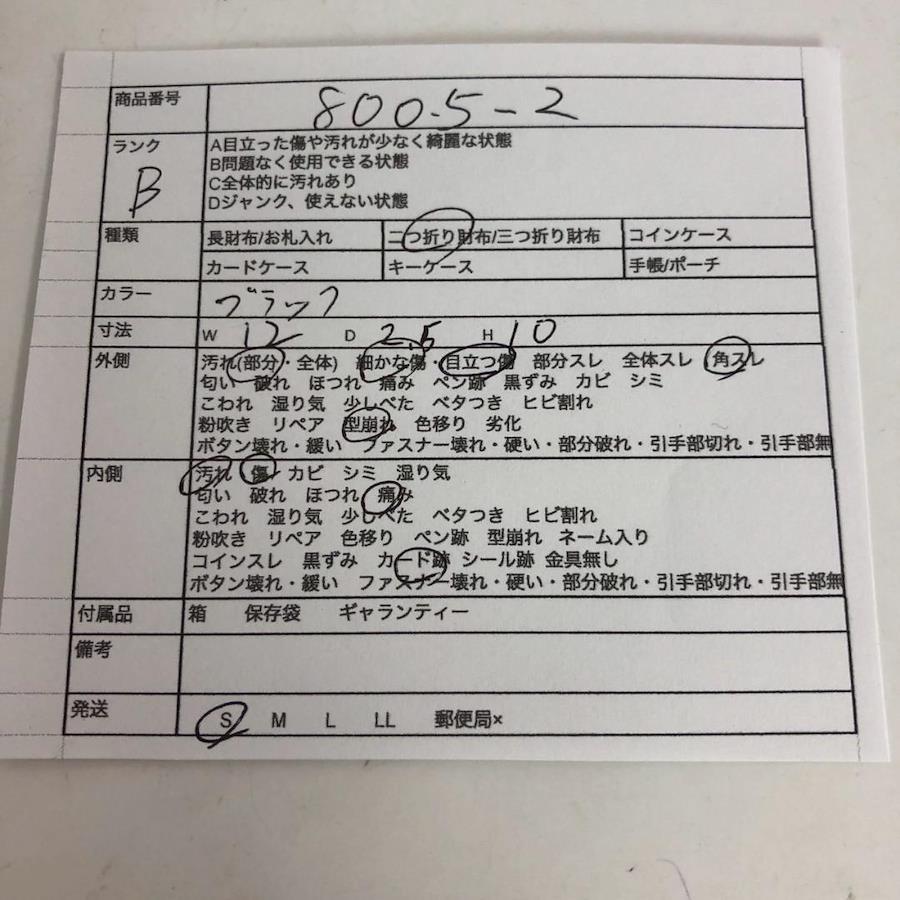 商品番号 800.5-2
ランク B A目立った傷や汚れが少なく綺麗な状態
B問題なく使用できる状態
C全体的に汚れあり
Dジャンク、使えない状態
種類 長財布/お札入れ 二つ折り財布/三つ折り財布 コインケース
カードケース キーケース 手帳/ポーチ
カラー ブラック
寸法 W 12 D 2.5 H 10
外側 汚れ(部分・全体) 細かな傷・目立つ傷 部分スレ 全体スレ 角スレ
匂い 破れ ほつれ 痛み ペン跡 黒ずみ カビ シミ
こわれ 湿り気 少しべた ベタつき ヒビ割れ
粉吹き リペア 型崩れ 色移り 劣化
ボタン壊れ・緩い ファスナー壊れ・硬い・部分破れ・引手部切れ・引手部無
内側 汚れ 傷・カビ シミ 湿り気
匂い 破れ ほつれ 痛み
こわれ 湿り気 少しべた ベタつき ヒビ割れ
粉吹き リペア 色移り ペン跡 型崩れ ネーム入り
コインスレ 黒ずみ カード跡 シール跡 金具無し
ボタン壊れ・緩い ファスナー壊れ・硬い・部分破れ・引手部切れ・引手部無
付属品 箱 保存袋 ギャランティー
備考
発送 S M L LL 郵便局×